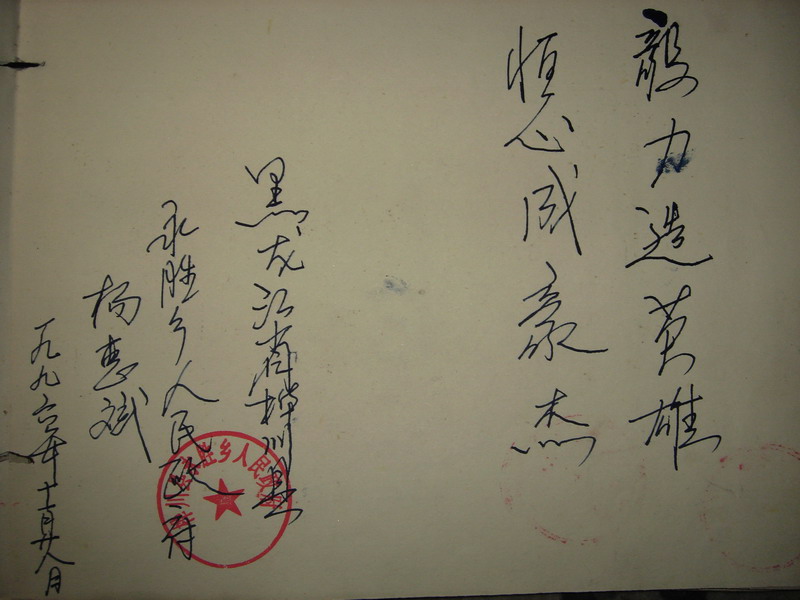 毅力造英雄
恒心成豪杰
黑龙江省桦川县
永胜乡人民政府
杨惠斌
一九九六年十一月廿八月
川县永胜乡人民政府